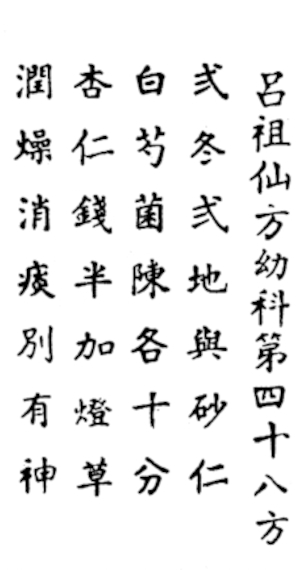 呂祖仙方幼科第四十八方
弍冬弍地與砂仁
白芍菌陳各十分
杏仁錢半加燈草
潤燥消痰別有神